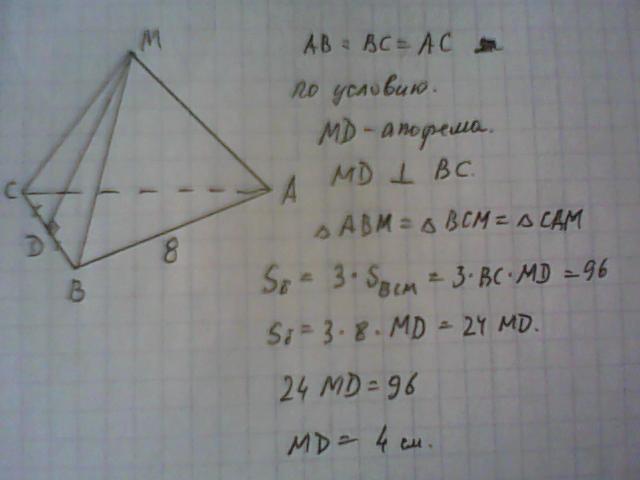 M
C
A
D
B
8
AB = BC = AC
по условию.
MD - апофема.
MD ⊥ BC.
△ABM = △BCM = △CAM
Sб = 3 · SBCM = 3 · BC · MD = 96
Sб = 3 · 8 · MD = 24 MD.
24 MD = 96
MD = 4 см.